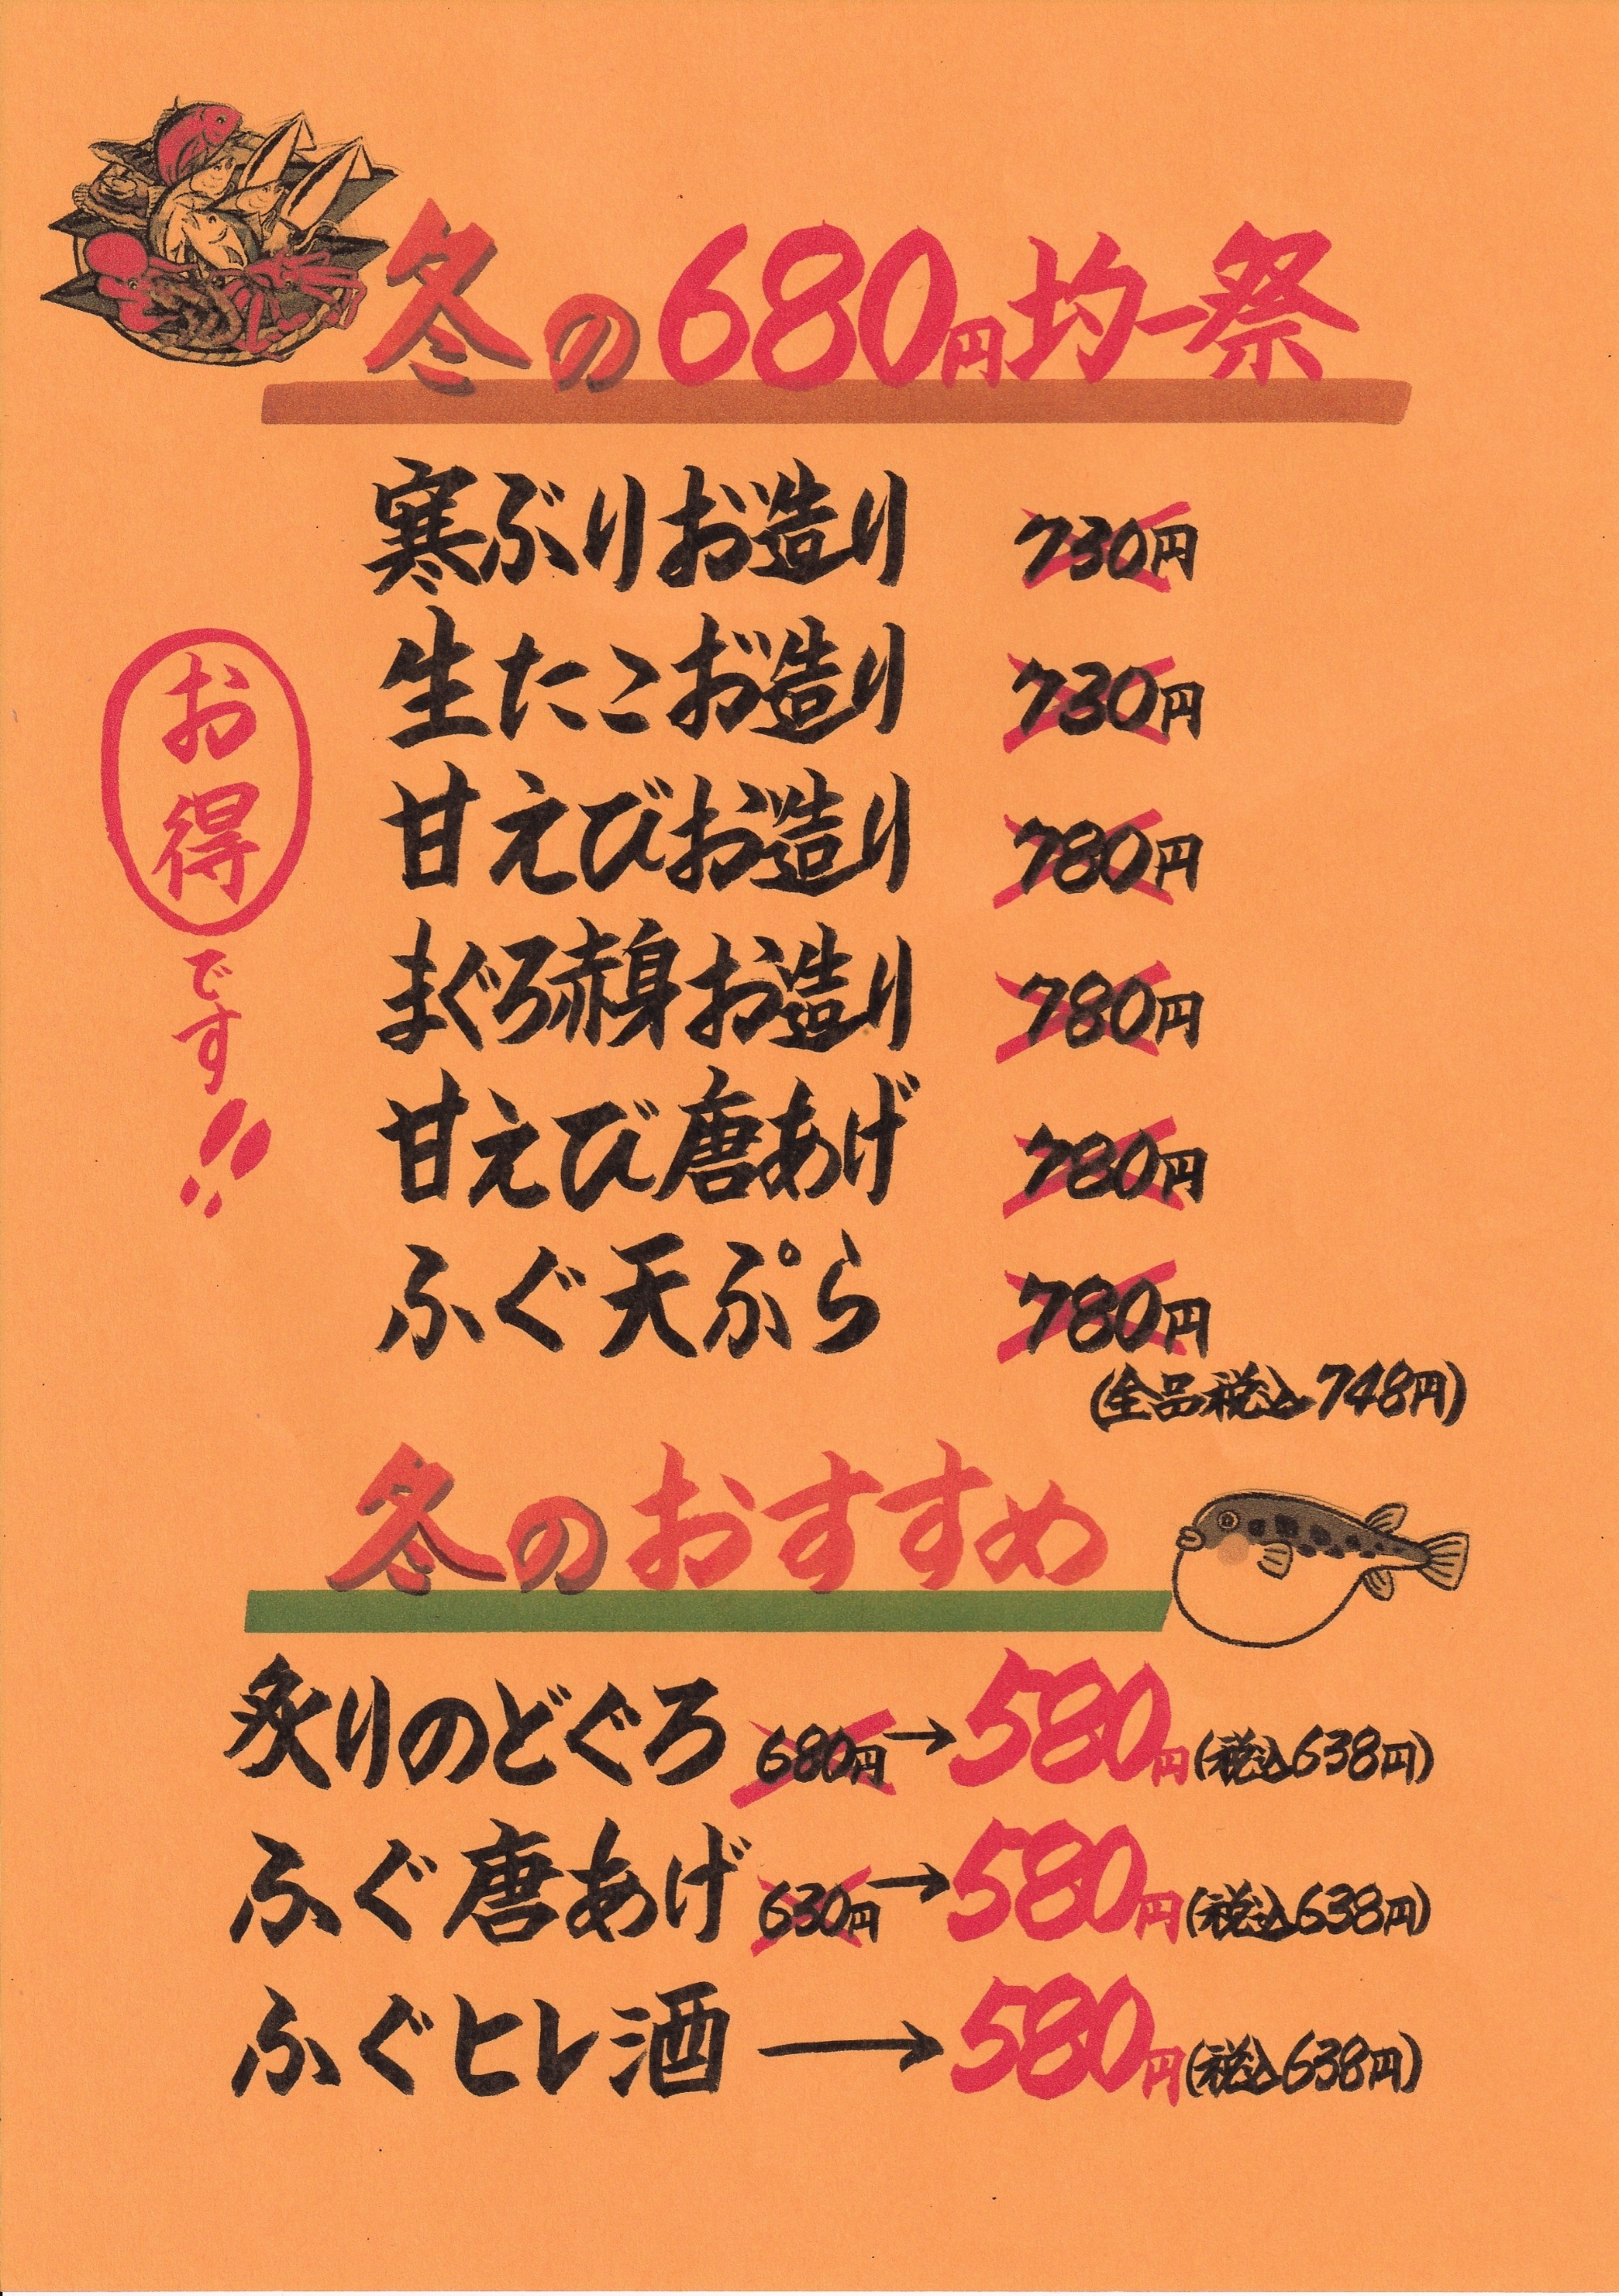 冬の680円均一祭
寒ぶりお造り 730円
生たこお造り 730円
甘えびお造り 780円
まぐろ赤身お造り 780円
甘えび唐あげ 780円
ふぐ天ぷら 780円
(全品税込748円)
お得です!!
冬のおすすめ
炙りのどぐろ 680円→580円(税込638円)
ふぐ唐あげ 630円→580円(税込638円)
ふぐヒレ酒→580円(税込638円)